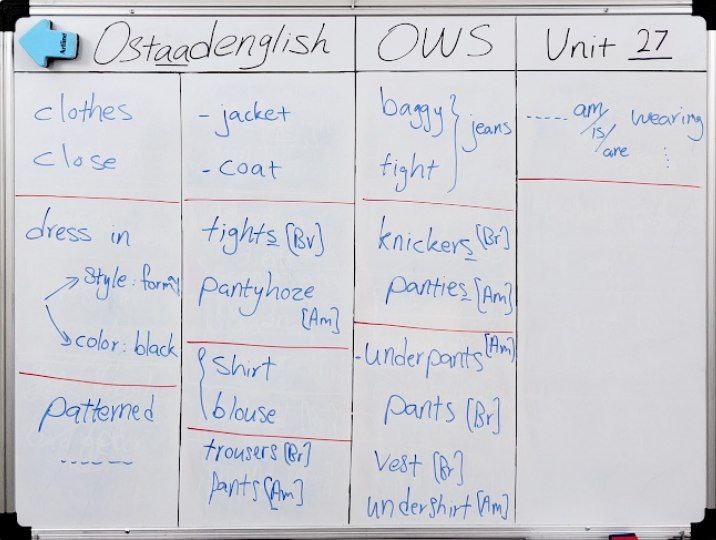 Ostaadenglish
OWS
Unit 27
Artline
clothes
close
dress in
style: formal
color: black
patterned
------
- jacket
- coat
tights [Br]
pantyhoze
[Am]
shirt
blouse
trousers [Br]
pants [Am]
baggy
tight
jeans
knickers [Br]
panties [Am]
- underpants [Am]
pants [Br]
vest [Br]
undershirt [Am]
----- am/is/are wearing